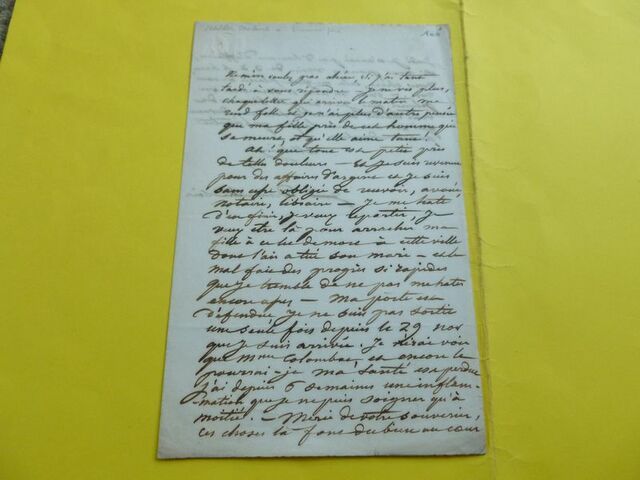 Ne m'en voulez pas chère, si j'ai tant
tardé à vous répondre je ne vis plus,
chaque lettre qui arrive le matin me
rend folle et je n'ai plus d'autre pensée
que ma fille près de cet homme qui
se meure, et qu'elle aime tant!
Ah! que tout est petit près
de telle douleurs — Et je suis revenue
pour des affaires d'argent et je suis
sans cesse obligée de recevoir, avoué,
notaire, libraire — Je me hate
d'en finir, je veux repartir, je
veux être là pour arracher ma
fille à ce lit de mort à cette ville
dont l'air a tué son mari — et le
mal fait des progrès si rapides
que je tremble de ne pas me hater
encore assez — Ma porte est
défendue je ne suis pas sortie
une seule fois depuis le 29 nov
que je suis arrivée. Je n'irai voir
que Mme Colombat, et encore le
pourrai-je ma santé est perdue
j'ai depuis 6 semaines une inflam-
mation que je ne puis soigner qu'à
moitié. — Merci de votre souvenir,
ces choses là font du bien au cœur